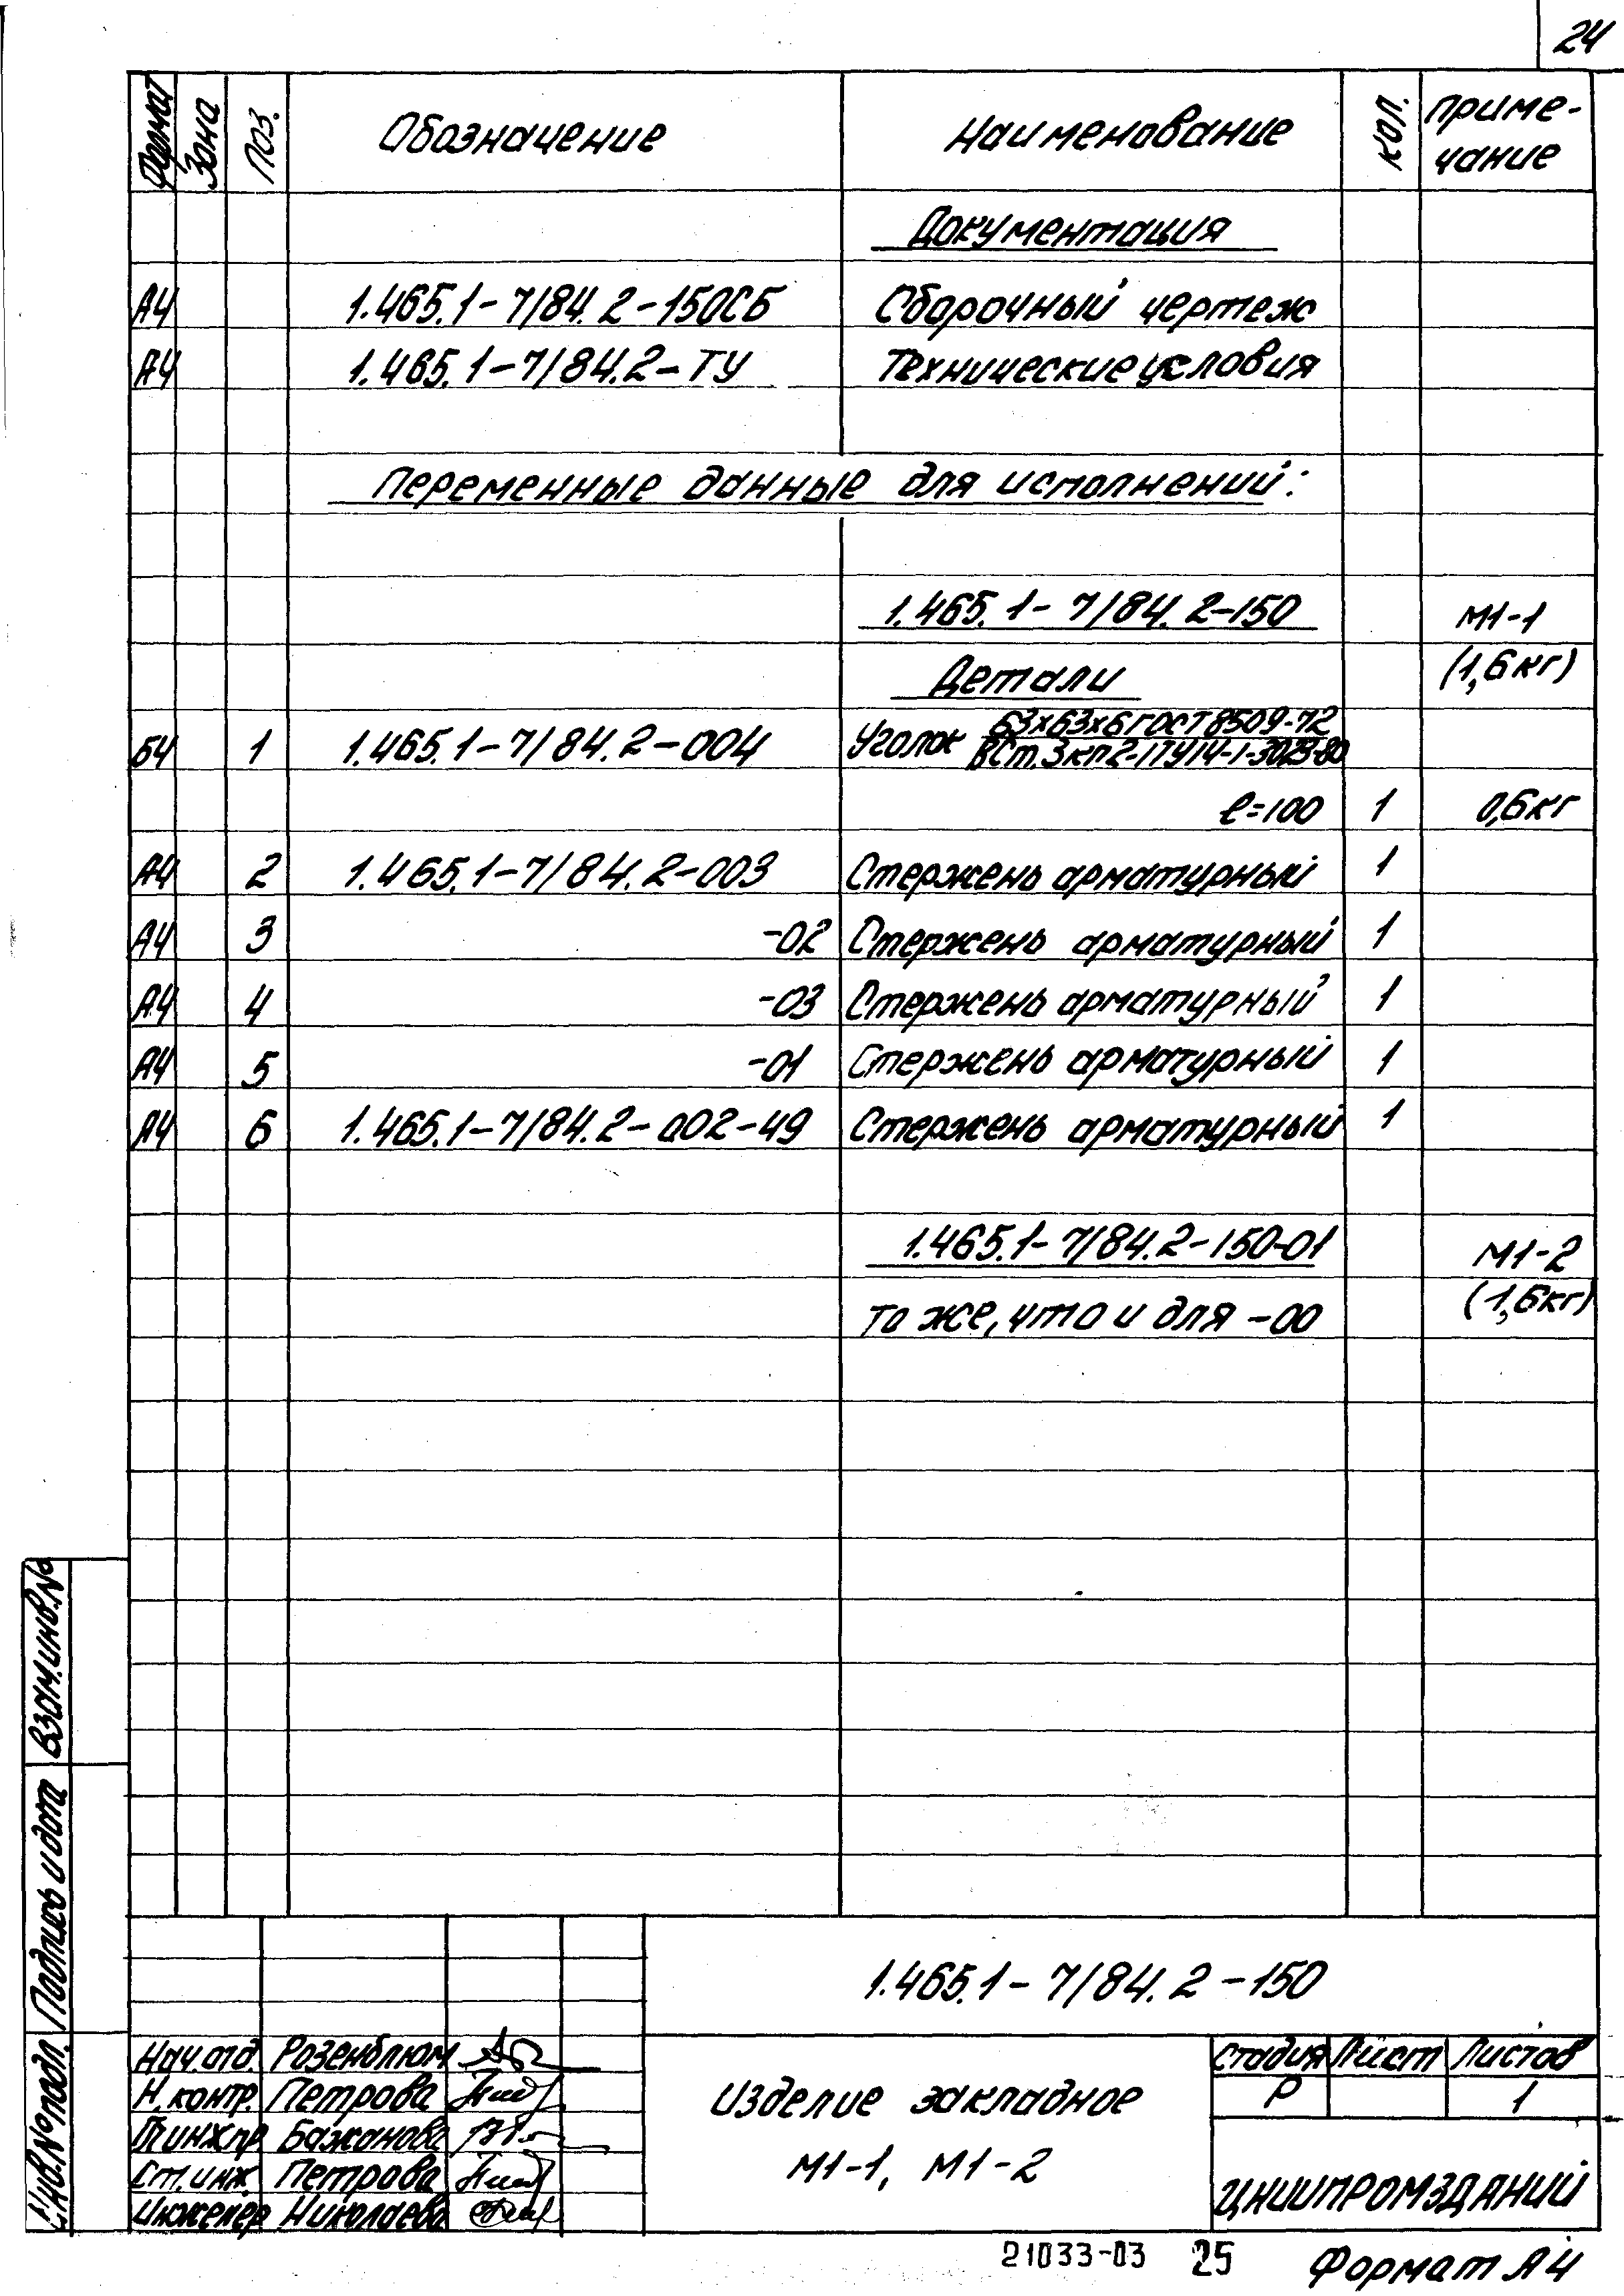 24
Формат Зона Поз. Обозначение Наименование Кол. Приме-
чание
Документация
А4 1.465.1-7/84.2-150СБ Сборочный чертеж
А4 1.465.1-7/84.2-ТУ Технические условия
Переменные данные для исполнений:
1.465.1-7/84.2-150 М1-1
Детали (1,6кг)
63х63х6 ГОСТ 8509-72
БЧ 1 1.465.1-7/84.2-004 Уголок
ВСт.3кп2-1ТУ14-1-3023-80
ℓ=100 1 0,6кг
А4 2 1.465.1-7/84.2-003 Стержень арматурный 1
А4 3 -02 Стержень арматурный 1
А4 4 -03 Стержень арматурный 1
А4 5 -01 Стержень арматурный 1
А4 6 1.465.1-7/84.2-002-49 Стержень арматурный 1
1.465.1-7/84.2-150-01 М1-2
То же, что и для -00 (1,6кг)
Взам.инв.№
Подпись и дата
Инв.№ подл.
1.465.1-7/84.2-150
Нач.отд. Розенблюм
Н.контр. Петрова
Гл.инж.пр Бажанова
Ст.инж. Петрова
Инженер Николаева
Изделие закладное
М1-1, М1-2
Стадия Лист Листов
Р 1
ЦНИИПРОМЗДАНИЙ
21033-03 25 Формат А4